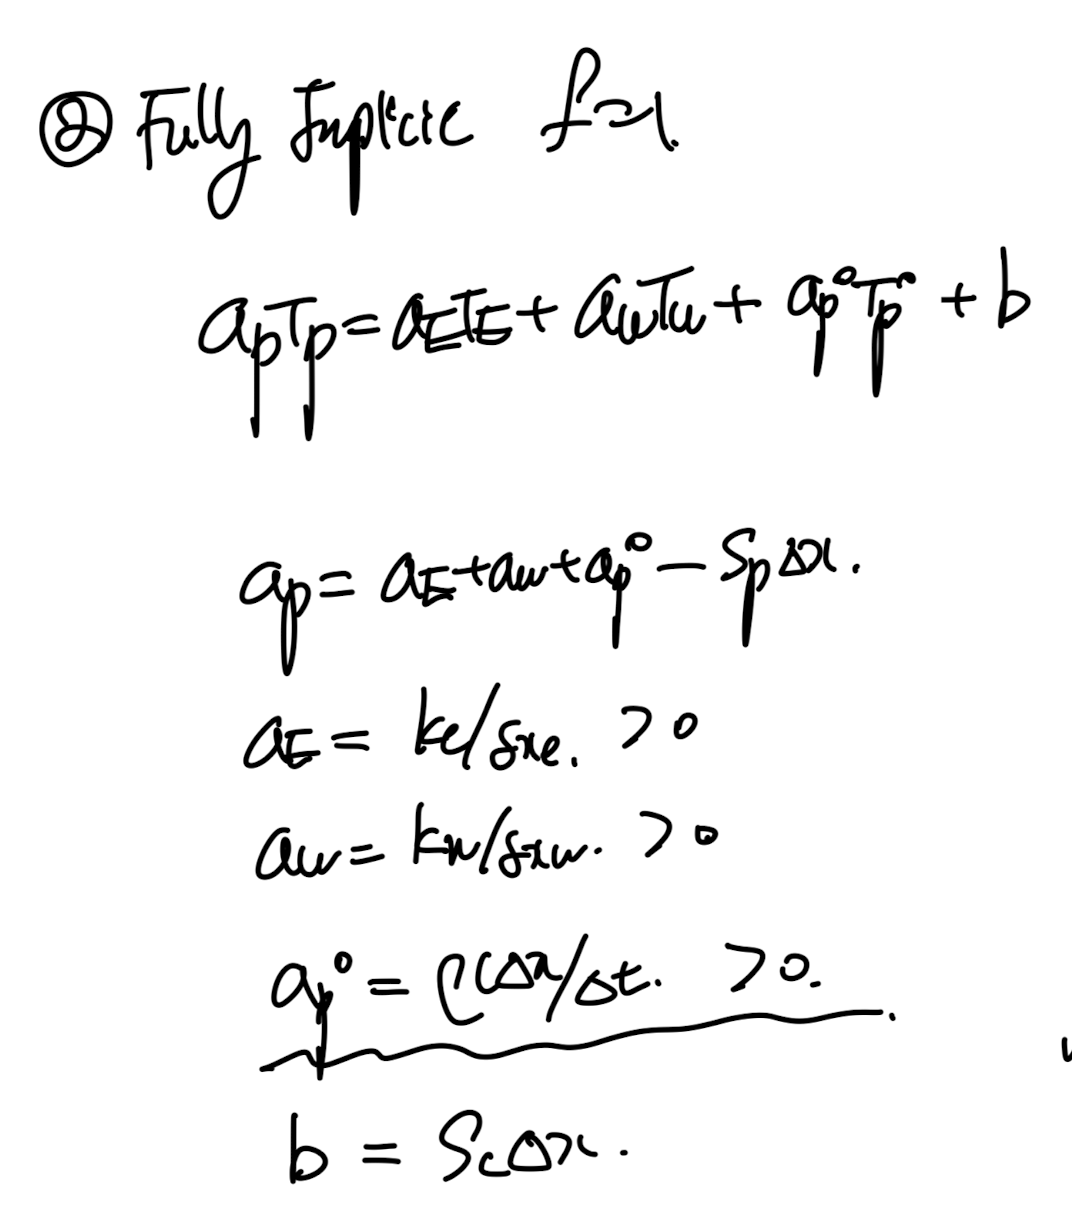 ② Fully Implicit f=1.
apTp = aETE + awTw + ap°Tp° + b
ap = aE + aw + ap° − SpΔx.
aE = ke/δxe. >0
aw = kw/δxw. >0
ap° = ρcΔx/Δt. >0.
b = ScΔx.